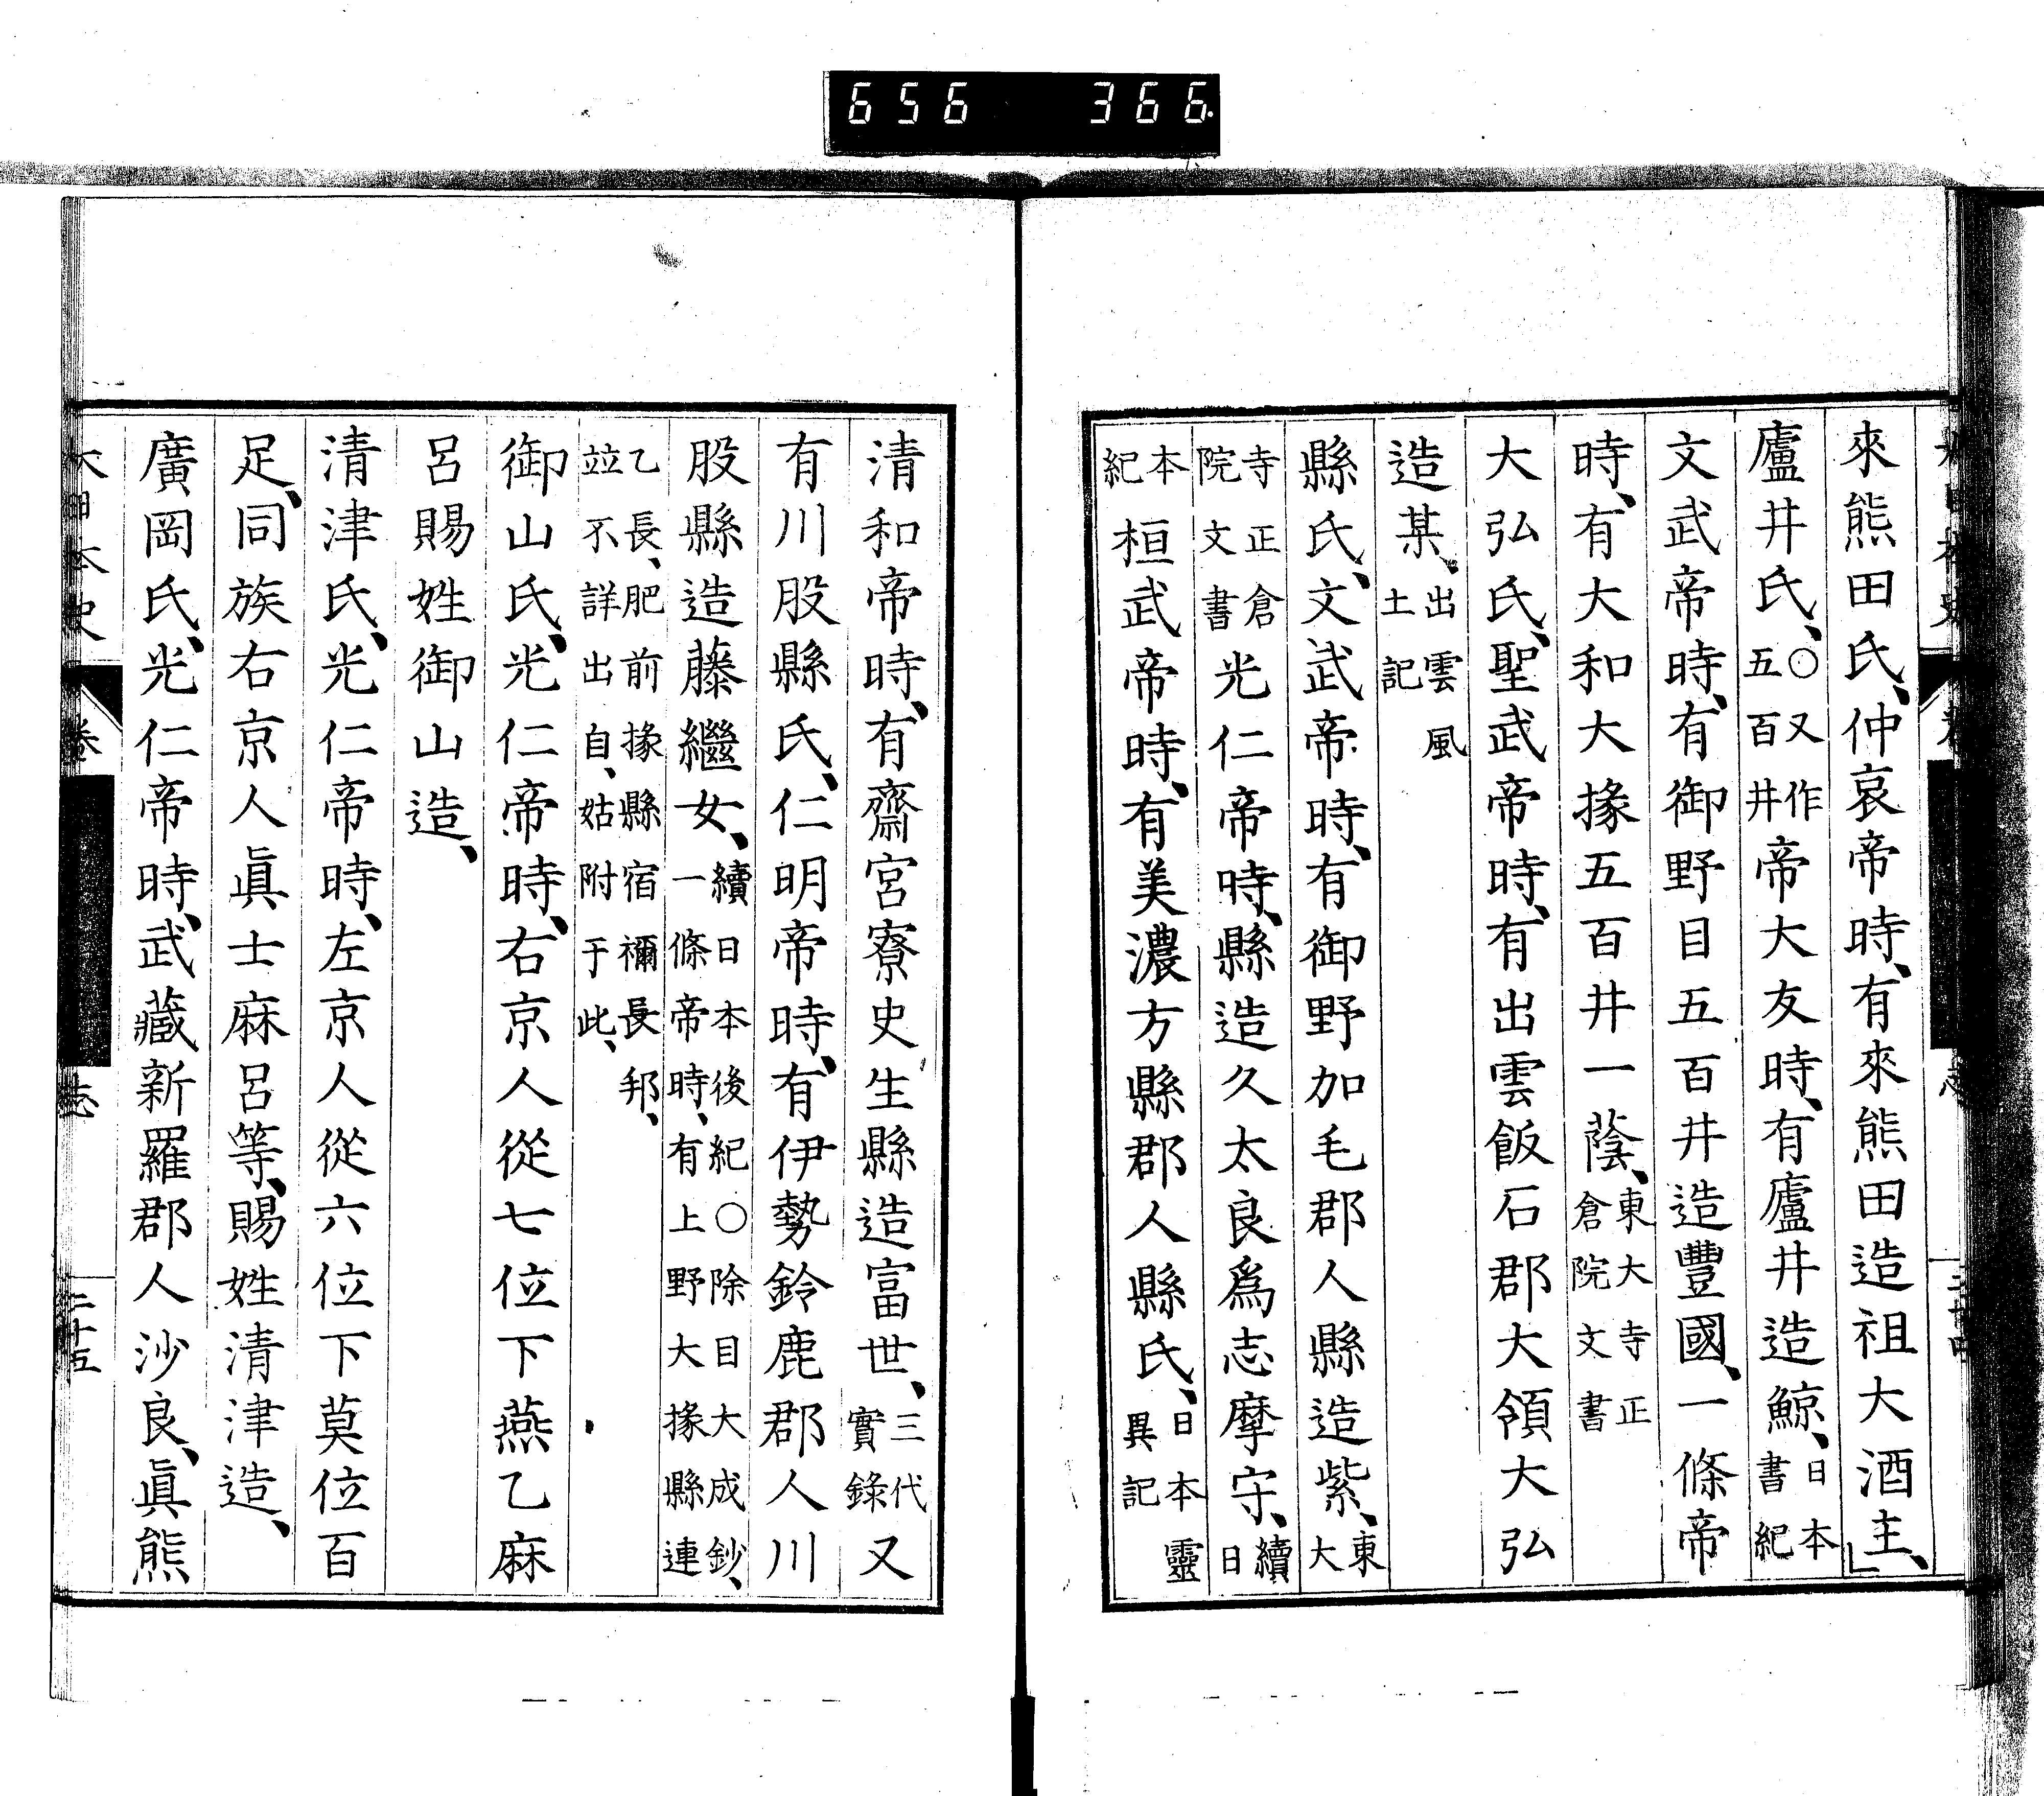 656 366
來熊田氏、仲哀帝時、有來熊田造祖大酒主、」
廬井氏、〇又作五百井帝大友時、有廬井造鯨、日本書紀
文武帝時、有御野目五百井造豐國、一條帝
時、有大和大掾五百井一蔭、東大寺正倉院文書
大弘氏、聖武帝時、有出雲飯石郡大領大弘
造某、出雲風土記
縣氏、文武帝時、有御野加毛郡人縣造紫、東大
寺正倉院文書光仁帝時、縣造久太良爲志摩守、續日
本紀桓武帝時、有美濃方縣郡人縣氏、日本靈異記
清和帝時、有齋宮寮史生縣造富世、三代實錄又
有川股縣氏、仁明帝時、有伊勢鈴鹿郡人川
股縣造藤繼女、續日本後紀〇除目大成鈔、一條帝時、有上野大掾縣連
乙長、肥前掾縣宿禰長邦、竝不詳出自、姑附于此、
御山氏、光仁帝時、右京人從七位下燕乙麻
呂賜姓御山造、
清津氏、光仁帝時、左京人從六位下莫位百
足、同族右京人眞士麻呂等、賜姓清津造、
廣岡氏、光仁帝時、武藏新羅郡人沙良、眞熊
大日本史
卷
志
二十五